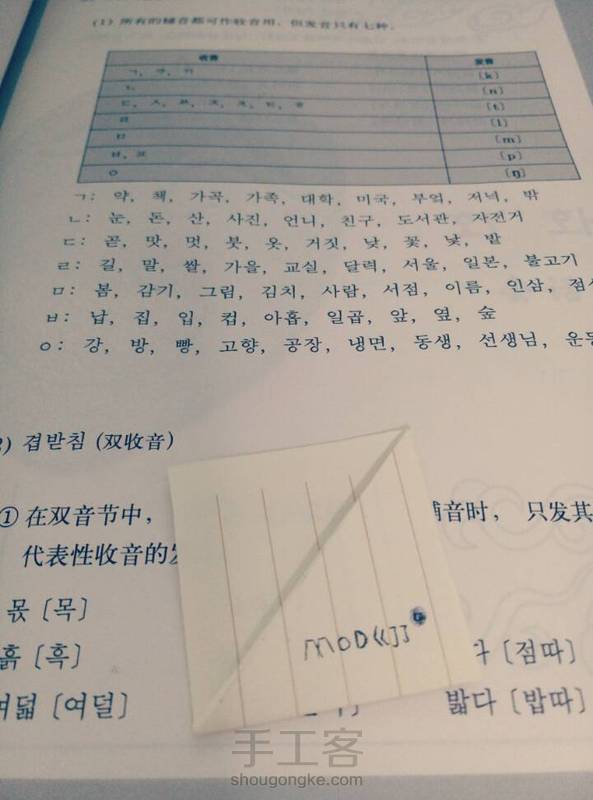 (1) 所有的辅音都可作收音用，但发音只有七种。
收音 发音
ㄱ, ㅋ, ㄲ [k]
ㄴ [n]
ㄷ, ㅅ, ㅆ, ㅈ, ㅊ, ㅌ, ㅎ [t]
ㄹ [l]
ㅁ [m]
ㅂ, ㅍ [p]
ㅇ [ŋ]
ㄱ: 약, 책, 가곡, 가족, 대학, 미국, 부엌, 저녁, 밖
ㄴ: 눈, 돈, 산, 사진, 언니, 친구, 도서관, 자전거
ㄷ: 곧, 맛, 멋, 붓, 옷, 거짓, 낮, 꽃, 낯, 밭
ㄹ: 길, 말, 쌀, 가을, 교실, 달력, 서울, 일본, 불고기
ㅁ: 봄, 감기, 그림, 김치, 사람, 서점, 이름, 인삼,
ㅂ: 납, 집, 입, 컵, 아홉, 일곱, 앞, 옆, 숲
ㅇ: 강, 방, 빵, 고향, 공장, 냉면, 동생, 선생님,
) 겹받침 (双收音)
① 在双音节中， 音时， 只发其
代表性收音的
몫 [목]
흙 [흑] [점따]
여덟 [여덜] 밟다 [밥따]
MOD《]]
手工客
shougongke.com